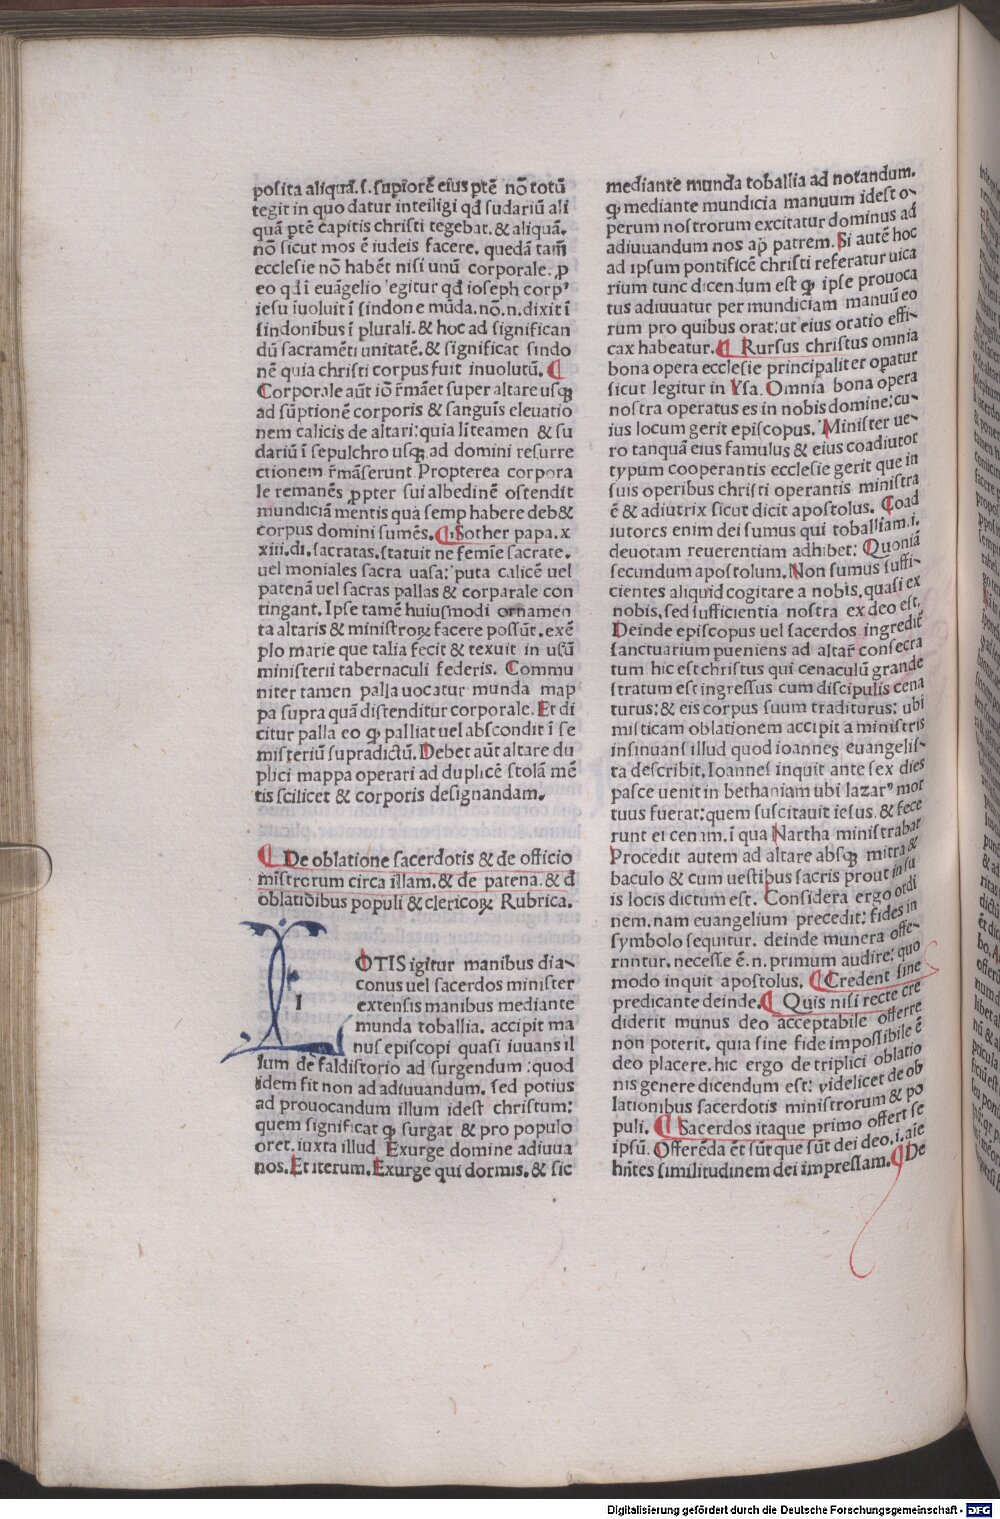 posita aliquā.ſ.ſupiorē eius ptē nō totū
tegit in quo datur inteiligi qđ ſudariū ali
quā ptē capitis chriſti tegebat.& aliquā.
nō ſicut mos ē iudeis facere. quedā tam̄
eccleſie nō habēt niſi unū corporale. ꝑ
eo qđ ī euāgelio legitur qđ ioſeph corpꝰ
ieſu īuoluit ī ſindone mūda.nō.n.dixit ī
ſindonibus ī plurali.& hoc ad ſignifican
dū ſacramēti unitatē.& ſignificat ſindo
nē quia chriſti corpus fuit inuolutū. ¶
Corporale aūt iō r̄māet ſuper altare uſqꝫ
ad ſūptionē corporis & ſanguis eleuatio
nem calicis de altari: quia līteamen & ſu
dariū ī ſepulchro uſqꝫ ad domini reſurre
ctionem r̄māſerunt Propterea corpora
le remanēs ꝓpter ſui albedinē oſtendit
mundiciā mentis quā ſemp habere deb&
corpus domini ſumēs. ¶ Sother papa.x
xiii.di.ſacratas.ſtatuit ne femīe ſacrate.
uel moniales ſacra uaſa: puta calicē uel
patenā uel ſacras pallas & corparale con
tingant. Ipſe tamē huiuſmodi ornamen
ta altaris & miniſtroꝝ facere poſſūt.exē
plo marie que talia fecit & texuit in uſū
miniſterii tabernaculi federis. Commu
niter tamen palla uocatur munda map
pa ſupra quā diſtenditur corporale. Et di
citur palla eo ꝙ palliat uel abſcondit ī ſe
miſteriū ſupradictū. Debet aūt altare du
plici mappa operari ad duplicē ſtolā mē
tis ſcilicet & corporis deſignandam.
¶ De oblatione ſacerdotis & de officio
miſtrorum circa illam.& de patena.& đ
oblatiōibus populi & clericoꝝ Rubrica.
L OTIS igitur manibus dia-
conus uel ſacerdos miniſter
l extenſis manibus mediante
munda toballia. accipit ma
nus epiſcopi quaſi iuuans il
lum de faldiſtorio ad ſurgendum: quod
idem fit non ad adiuuandum. ſed potius
ad prouocandum illum ideſt chriſtum:
quem ſignificat ꝙ ſurgat & pro populo
oret.iuxta illud Exurge domine adiuua
nos. Et iterum. Exurge qui dormis.& ſic
mediante munda toballia ad notandum.
ꝙ mediante mundicia manuum ideſt o-
perum noſtrorum excitatur dominus ad
adiuuandum nos ap̄ patrem. Si autē hoc
ad ipſum pontificē chriſti referatur uica
rium tunc dicendum eſt ꝙ ipſe prouoca
tus adiuuatur per mundiciam manuū eo
rum pro quibus orat: ut eius oratio effi-
cax habeatur. ¶ Rurſus chriſtus omnia
bona opera eccleſie principaliter opatur
ſicut legitur in Yſa. Omnia bona opera
noſtra operatus es in nobis domine: cu-
ius locum gerit epiſcopus. Miniſter ue-
ro tanquā eius famulus & eius coadiutor
typum cooperantis eccleſie gerit que in
ſuis operibus chriſti operantis miniſtra
ē & adiutrix ſicut dicit apoſtolus. Coad
iutores enim dei ſumus qui toballiam.i.
deuotam reuerentiam adhibet: Quoniā
ſecundum apoſtolum. Non ſumus ſuffi-
cientes aliquid cogitare a nobis.quaſi ex
nobis.ſed ſufficientia noſtra ex deo eſt.
Deinde epiſcopus uel ſacerdos ingredit̄
ſanctuarium pueniens ad altar̄ conſecra
tum hic eſt chriſtus qui cenaculū grande
ſtratum eſt ingreſſus cum diſcipulis cena
turus: & eis corpus ſuum traditurus: ubi
miſticam oblationem accipit a miniſtris
inſinuans illud quod ioannes euangeliſ-
ta deſcribit. Ioannes inquit ante ſex dies
paſce uenit in bethaniam ubi lazarꝰ mor
tuus fuerat: quem ſuſcitauit ieſus.& fece
runt ei cenam.ī qua Nartha miniſtrabat
Procedit autem ad altare abſqꝫ mitra &
baculo & cum ueſtibus ſacris prout in ſu
is locis dictum eſt. Conſidera ergo ordi
nem.nam euangelium precedit: fides in
ſymbolo ſequitur. deinde munera offe-
rnntur. neceſſe ē.n. primum audire: quo
modo inquit apoſtolus. ¶ Credent ſine
predicante deinde. ¶ Quis niſi recte cre
diderit munus deo acceptabile offerre
non poterit. quia ſine fide impoſſibile ē
deo placere. hic ergo de triplici oblatio
nis genere dicendum eſt: videlicet de ob
lationibus ſacerdotis miniſtrorum & po
puli. ¶ Sacerdos itaque primo offert ſe
ipſū. Offerēda ēt ſūt que ſūt dei deo.i.aīe
hn̄tes ſimilitudinem dei impreſſam. ¶ De
Digitalisierung gefördert durch die Deutsche Forschungsgemeinschaft - DFG